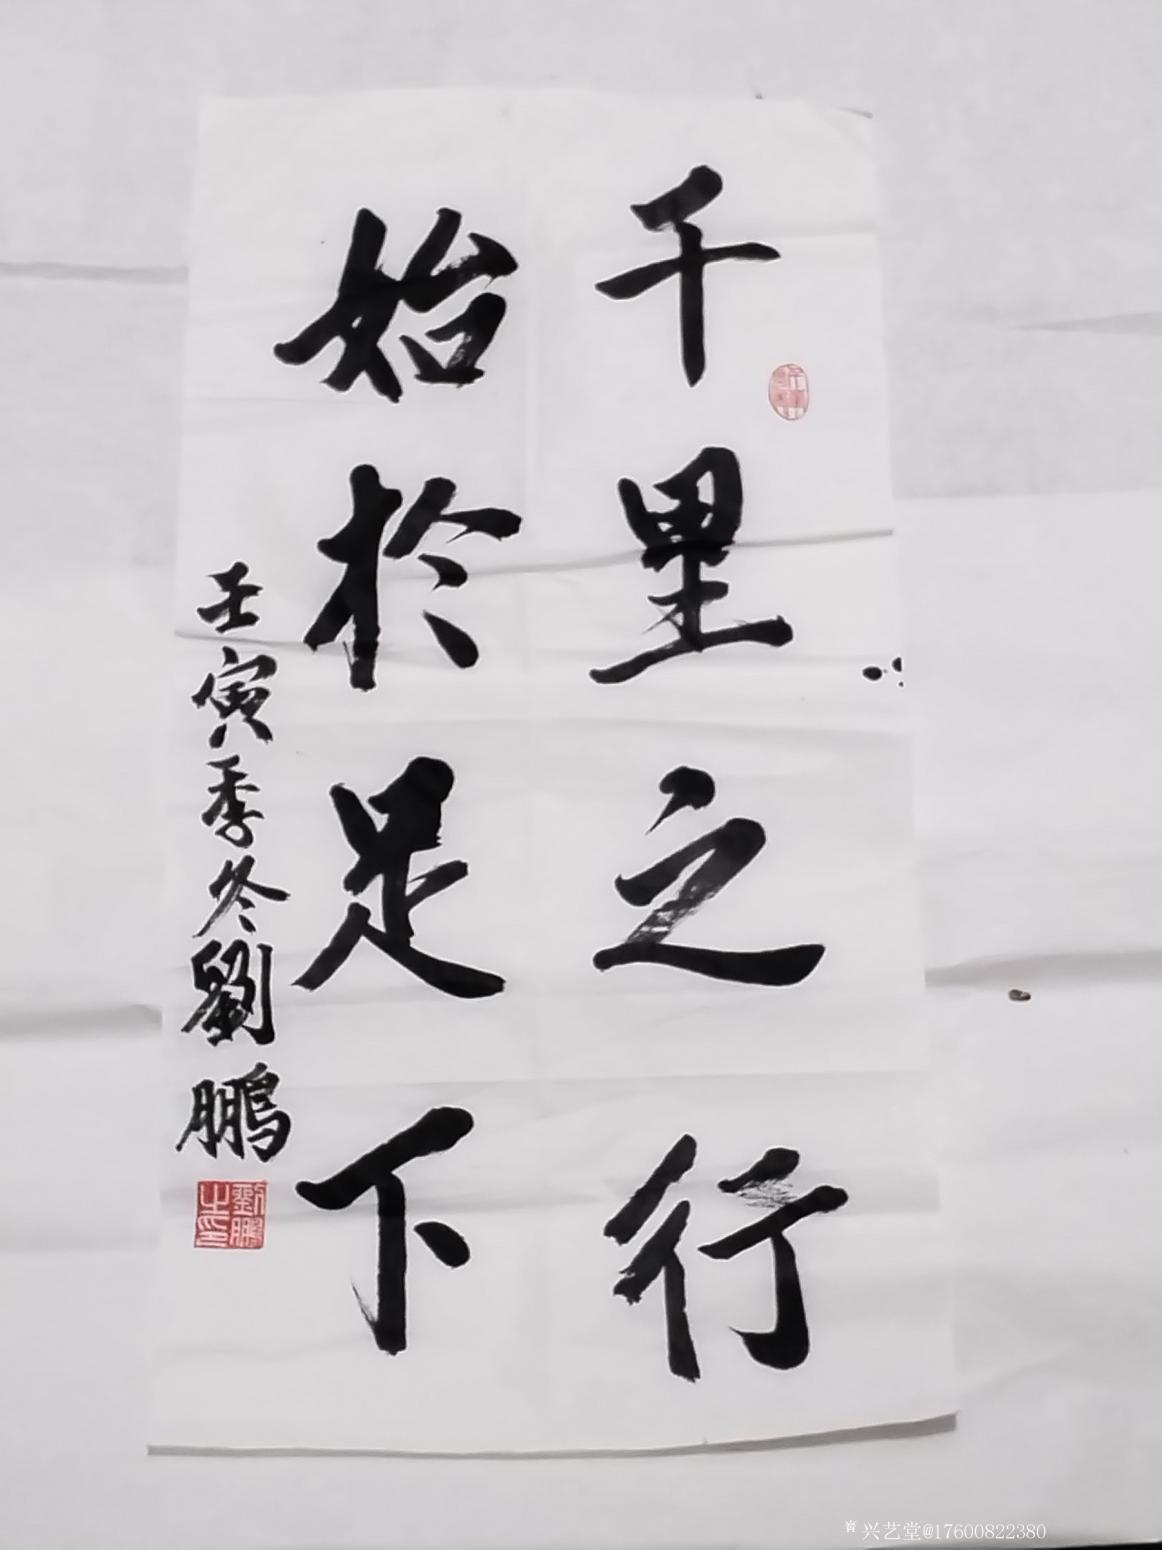 千里之行
始於足下
壬寅季冬劉鵬
劉鵬之印
兴艺堂@17600822380